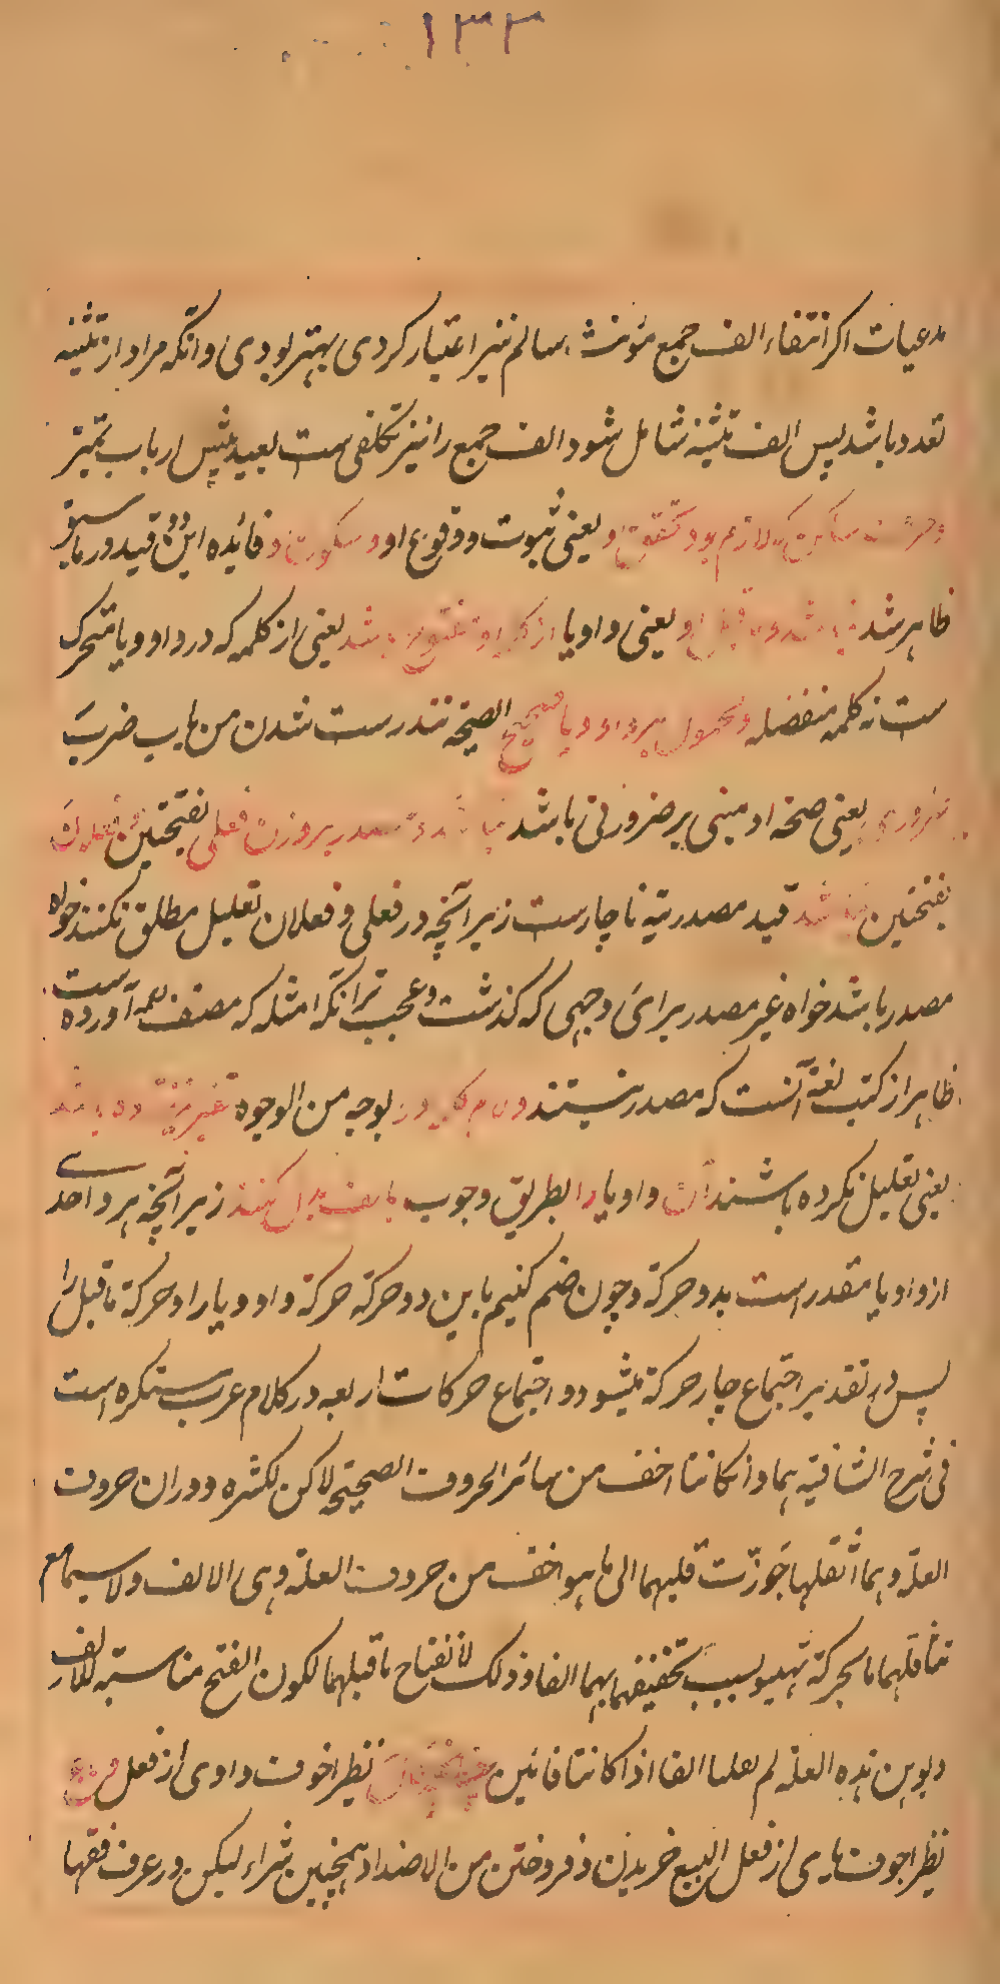 ۱۳۳
مدعیات اکر انتفاء الف جمع مؤنث سالم نیز اعتبار کردی بهتر بودی وانکه مراد از تثنیه
تعدد باشد پس الف تثنیه شامل شود الف جمع را نیز تکلفی ست بعید پیش ارباب تمیز
یعنی ثبوت و وقوع او و سکون و فائده این دو قید در ما سبق
ظاهر شد یعنی واو یا باشد یعنی از کلمه که درو واو و یا متحرک
ست نه کلمه منفصله الصیحة تندرست شدن من باب ضرب
ضروری یعنی صحة او مبنی بر ضرورتی باشد نباشد و مصدر بر وزن فعلی بفتحتین و فعلان
بفتحتین نباشد قید مصدریة ناچارست زیرانچه در فعلی و فعلان تعلیل مطلق نکنند خواه
مصدر باشد خواه غیر مصدر برای وجهی که کذشت و عجب تر انکه امثله که مصنف آورده ست
ظاهر از کتب لغة آنست که مصدر نیستند بوجه من الوجوه
یعنی تعلیل نکرده باشند آن واو یا را بطریق وجوب بالف بدل کنند زیرانچه هر واحدی
از واو یا مقدر است بدو حرکة و چون ضم کنیم باین دو حرکة حرکة واو و یا را و حرکة ما قبل را
پس در تقدیر اجتماع چار حرکة میشود و اجتماع حرکات اربعه در کلام عرب مستکره است
فی شرح الشافیة هما وان کانتا اخف من سائر الحروف الصحیحة لاکن لکثره دوران حروف
العلة وهما اثقلها جوزت قلبهما الی ما هو اخف من حروف العلة وهی الالف ولا سیما مع
تثاقلهما بالحرکة تهیو سبب تخفیفهما بهما الفا وذلک لانفتاح ما قبلهما لکون الفتح مناسبة للالف
و بوهن هذه العلة لم یقلبا الفا اذا کانتا فائین نظیر اجوف واوی از فعل
نظیر اجوف یایی از فعل البیع خریدن و فروختن من الاضداد همچنین شراء لیکن در عرف فقها